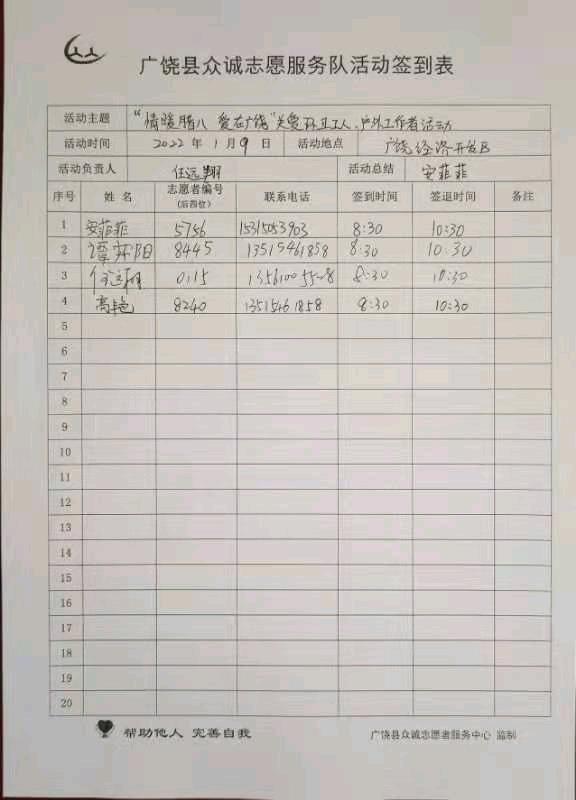 广饶县众诚志愿服务队活动签到表
活动主题 “情暖腊八 爱在广饶”关爱环卫工人、户外工作者活动
活动时间 2022 年 1 月 9 日 活动地点 广饶经济开发区
活动负责人 任远翔 活动总结 安菲菲
序号 姓 名 志愿者编号 (后四位) 联系电话 签到时间 签退时间 备注
1 安菲菲 5756 15315053903 8:30 10:30
2 谭 阳 8445 13515461858 8:30 10:30
3 任远翔 0115 8:30 10:30
4 高艳 8240 1351546 1858 8:30 10:30
5
6
7
8
9
10
11
12
13
14
15
16
17
18
19
20
帮助他人 完善自我 广饶县众诚志愿者服务中心 监制